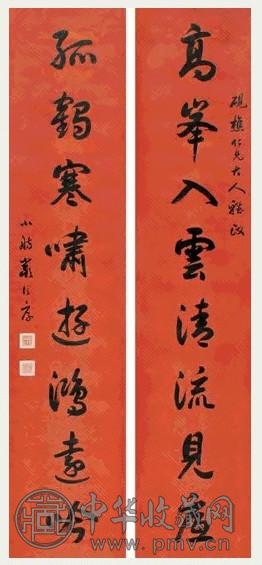 硯樵仁兄大人雅政
高峯入雲清流見底
孤鶴寒嘯遊鴻遠吟
小舫嚴信厚
中华收藏网
www.pmv.cn